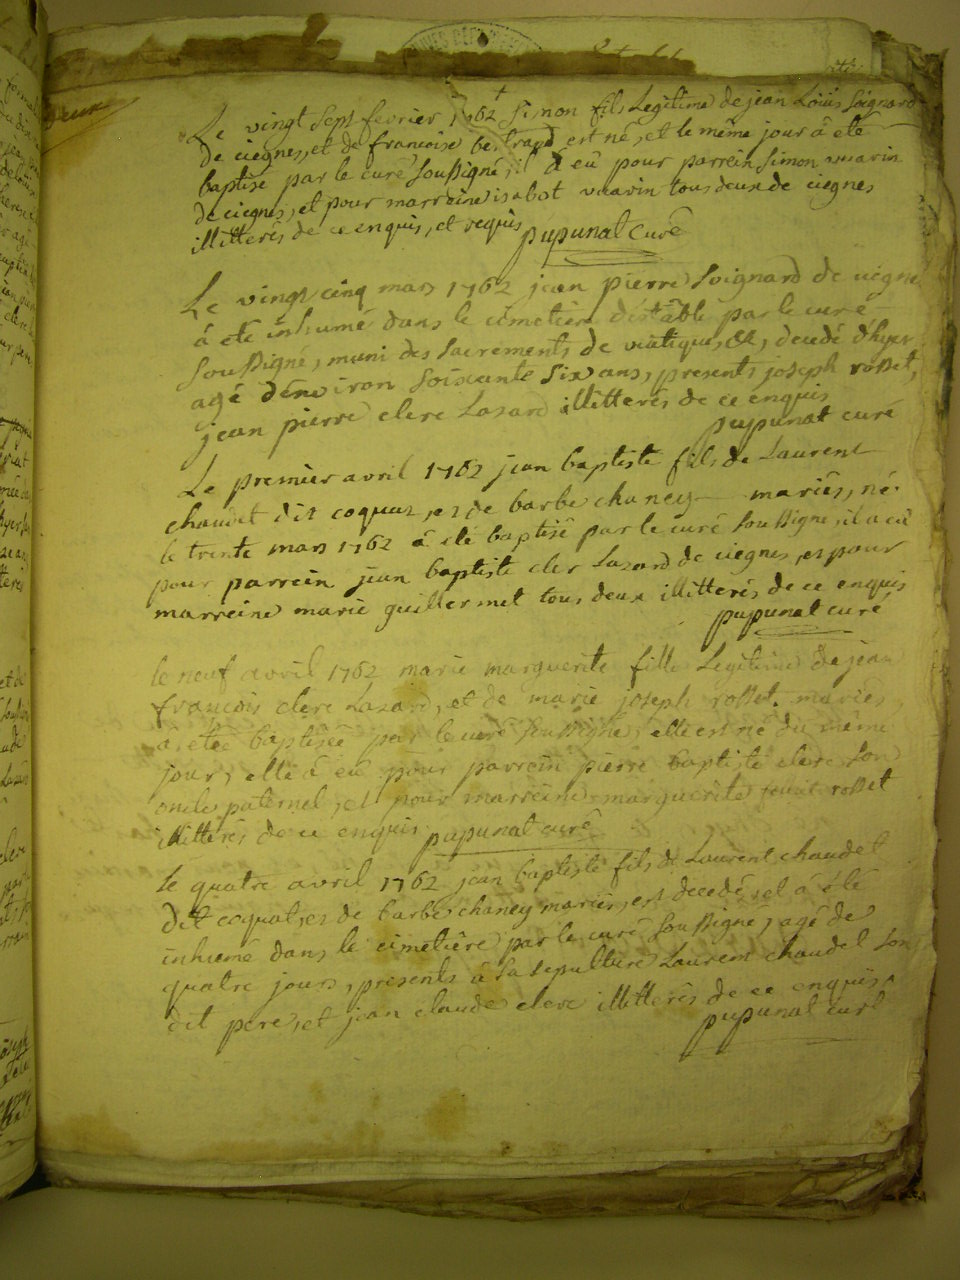 deux
Le vingt sept fevrier 1762 Simon fils Legitime de jean Loüis Soignard
de ciegnes, et de francoise bertrand est né, et le même jour â eté
baptisé par le curé Soussigné, il â eû pour parrein Simon vuarin
de ciegnes, et pour marreine isabot vuarin tous deux de ciegnes
illitterés de ce enquis, et requis pupunat Curé
Le vingt cinq mars 1762 jean pierre Soignard de ciegne
â eté inhumé dans le cimetiere par le curé
Soussigné, muni des Sacrements de viatique, &c, decedé d'hyer
agé d'environ Soixante Six ans, presents joseph rosset,
jean pierre clerc Lazard illitterés de ce enquis
pupunat curé
Le premier avril 1762 jean baptiste fils de Laurent
chaudet dit coquat, et de barbe chaney mariés, né
le trente mars 1762 â eté baptisé par le curé Soussigné, il a eû
pour parrein jean baptiste cler Lazard de ciegnes, et pour
marreine marie guillermet tous deux illitterés de ce enquis
pupunat curé
le neuf avril 1762 marie marguerite fille Legitime de jean
francois clerc Lazard, et de marie joseph rosset mariés,
â etée baptisée par le curé Soussigné, elle est né du même
jour, elle â eû pour parrein pierre baptiste clerc Son
oncle paternel, et pour marreine marguerite rosset
illitterés de ce enquis pupunat curé
Le quatre avril 1762 jean baptiste fils de Laurent chaudet
dit coquat, et de barbe chaney mariés, est decedé, et â été
inhumé dans le cimetiere par le curé Soussigné, agé de
quatre jours, presents â la sepulture Laurent chaudet Son
dit pere, et jean claude clerc illitterés de ce enquis
pupunat curé